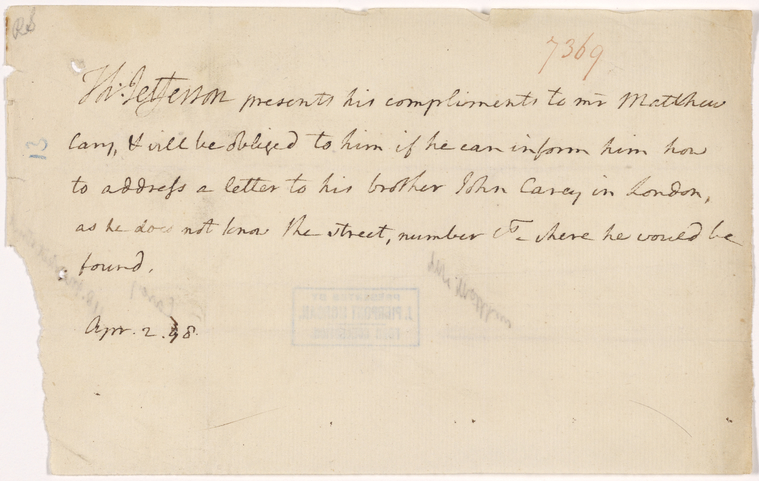 RS
7369
Th: Jefferson presents his compliments to mr Matthew
Cary, & will be obliged to him if he can inform him how
to address a letter to his brother John Carey in London,
as he does not know the street, number &c where he would be
found.
Apr. 2. 98.
13
PRESENTED BY
J. PIERPONT MORGAN,